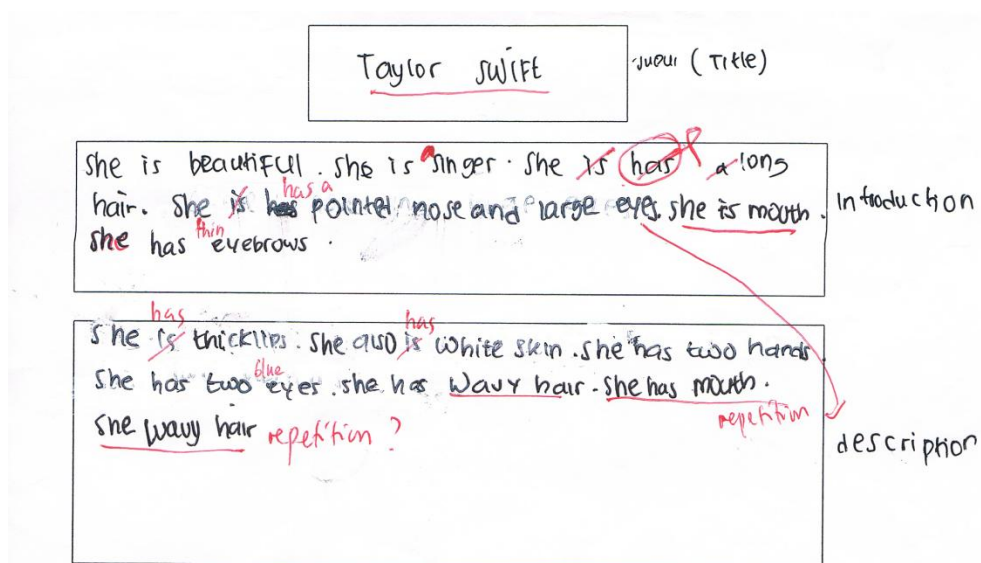 Taylor Swift
(Title)
She is beautiful. She is singer. She is has a long
has a
hair. She is has pointed nose and large eyes. she is mouth.
Introduction
thin
she has eyebrows.
has has
She is thick lips. She also is white skin. She has two hands
blue
She has two eyes. she has wavy hair. She has mouth.
repetition
She wavy hair repetition?
description